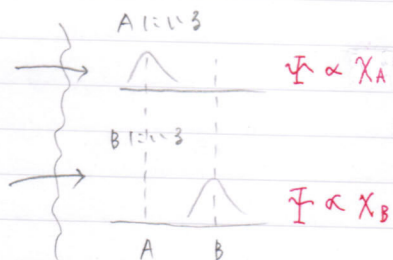 Aにいる
Ψ ∝ χA
Bにいる
Ψ ∝ χB
A B